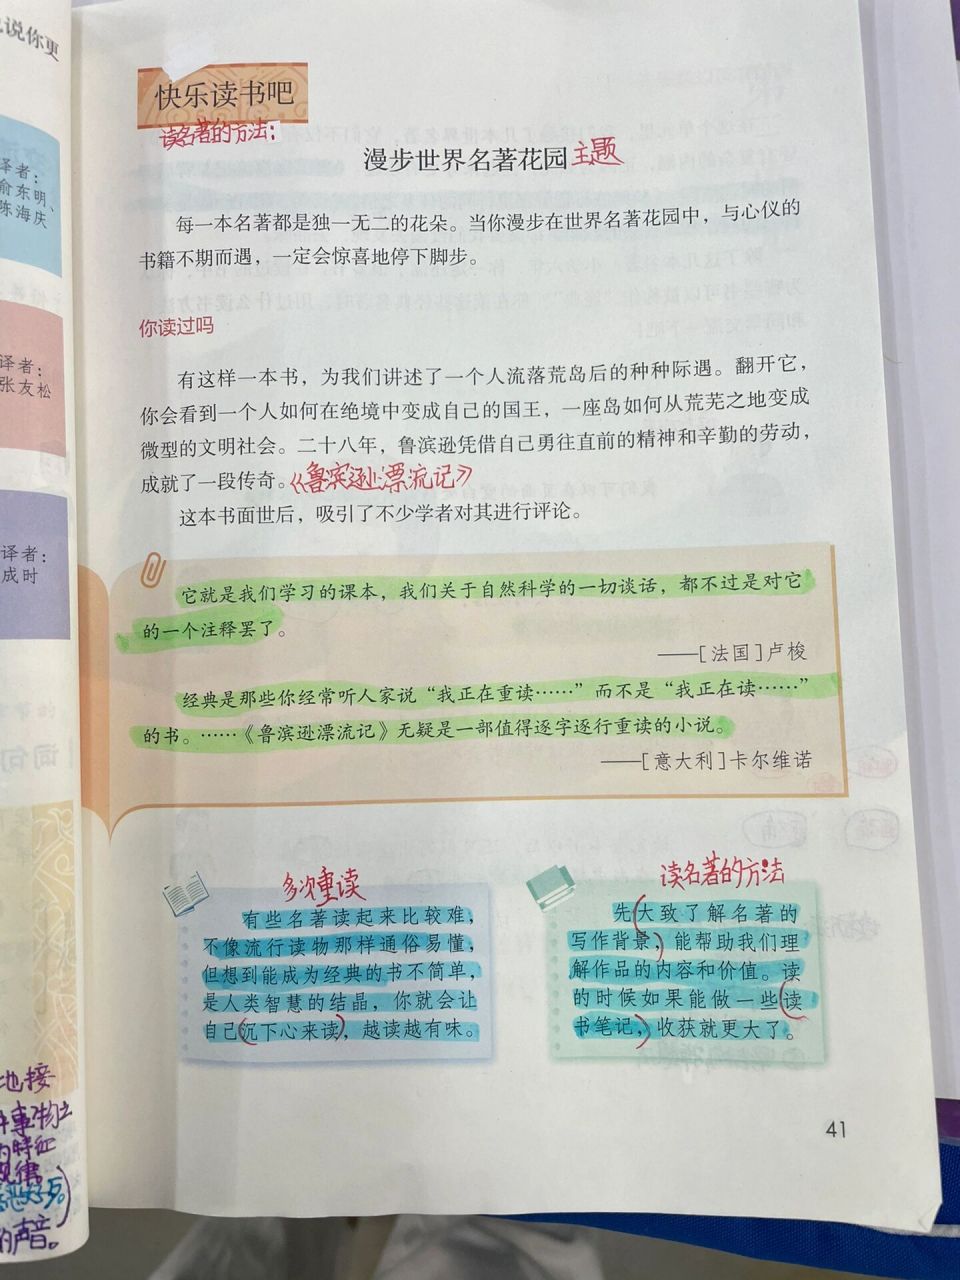 说你更
译者：
俞东明、
陈海庆
译者：
张友松
译者：
成时
地接
事物立
特征
规律。
的声音。
快乐读书吧
读名著的方法：
漫步世界名著花园 主题
每一本名著都是独一无二的花朵。当你漫步在世界名著花园中，与心仪的
书籍不期而遇，一定会惊喜地停下脚步。
你读过吗
有这样一本书，为我们讲述了一个人流落荒岛后的种种际遇。翻开它，
你会看到一个人如何在绝境中变成自己的国王，一座岛如何从荒芜之地变成
微型的文明社会。二十八年，鲁滨逊凭借自己勇往直前的精神和辛勤的劳动，
成就了一段传奇。《鲁滨逊漂流记》
这本书面世后，吸引了不少学者对其进行评论。
它就是我们学习的课本，我们关于自然科学的一切谈话，都不过是对它
的一个注释罢了。
——[法国]卢梭
经典是那些你经常听人家说“我正在重读……”而不是“我正在读……”
的书。……《鲁滨逊漂流记》无疑是一部值得逐字逐行重读的小说。
——[意大利]卡尔维诺
多次重读
有些名著读起来比较难，
不像流行读物那样通俗易懂，
但想到能成为经典的书不简单，
是人类智慧的结晶，你就会让
自己(沉下心来读)，越读越有味。
读名著的方法
先(大致了解名著的
写作背景)，能帮助我们理
解作品的内容和价值。读
的时候如果能做一些(读
书笔记)，收获就更大了。
41